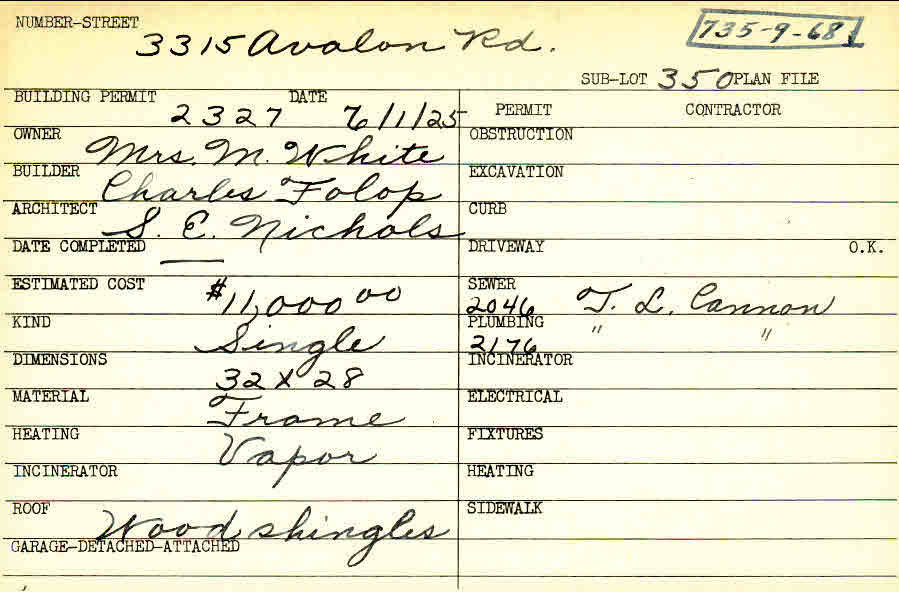 NUMBER-STREET 3315 Avalon Rd. 735-9-68
SUB-LOT 350 PLAN FILE
BUILDING PERMIT 2327 DATE 6/1/25 PERMIT CONTRACTOR
OWNER Mrs. M. White OBSTRUCTION
BUILDER Charles Folop EXCAVATION
ARCHITECT S. E. Nichols CURB
DATE COMPLETED — DRIVEWAY O.K.
ESTIMATED COST $11,000 00 SEWER 2046 T. L. Cannon
KIND Single PLUMBING 2176 " "
DIMENSIONS 32 x 28 INCINERATOR
MATERIAL Frame ELECTRICAL
HEATING Vapor FIXTURES
INCINERATOR HEATING
ROOF Wood shingles SIDEWALK
GARAGE-DETACHED-ATTACHED